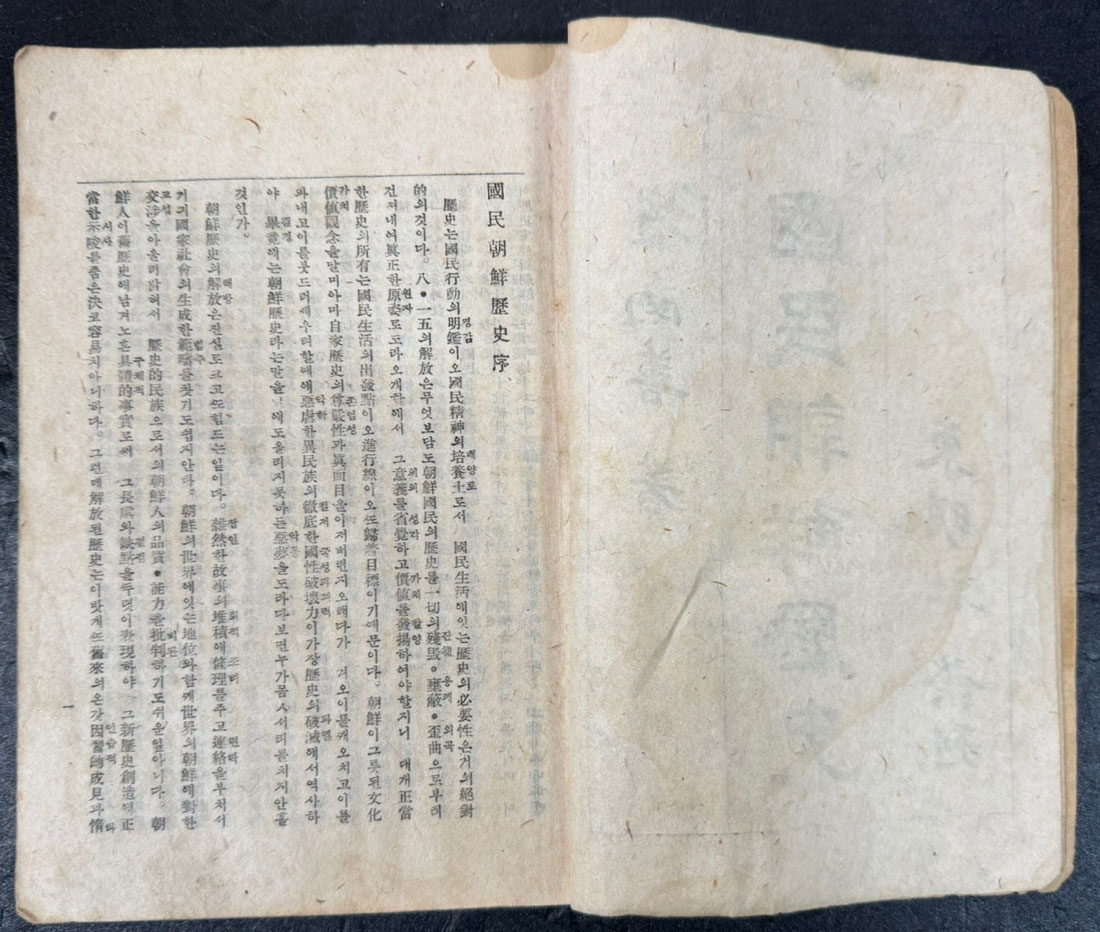 國民朝鮮歷史序
歷史는國民行動의明鑑이오國民精神의培養土로서 國民生活에잇는歷史의必要性은거의絕對
的의것이다。八・一五의解放은무엇보담도朝鮮國民의歷史를一切의殘毁・壅蔽・歪曲으로부터
건저내여眞正한原姿로도라오게한에서 그意義를省覺하고價値를發揚하여야할지니 대개正當
한歷史의所有는國民生活의出發點이오進行線이오또歸着目標이기때문이다。朝鮮이그릇된文化
價値觀念을말미아마自家歷史의尊嚴性과眞面目을이저버린지오래다가 겨오이를깨오치고이를
과내고이를붓드러세우려할때에惡虐한異民族의徹底한國性破壞力이가장歷史의破滅에서역사하
야 畢竟에는朝鮮歷史라는말을 에도올리지못하든惡夢을도라다보면누가몸서리를치지안흘
것인가。
朝鮮歷史의解放은진실도크고또힘드는일이다。雜然한故事의堆積에條理를주고連絡을부처서
거긔國家社會의生成한範疇를찻기도쉽지안다。朝鮮의世界에잇는地位와함께世界의朝鮮에對한
交涉을아울러밝혀서 歷史的民族으로서의朝鮮人의品質・能力을批判하기도쉬운일아니다。朝
鮮人이舊歷史에남겨노흔具體的事實로써 그長處와缺點을두렷이表現하야 그新歷史創造엣正
當한示唆를줌은決코容易치아니하다。그런데解放된歷史는이맛게또舊來의온갓因習的成見과惰
一